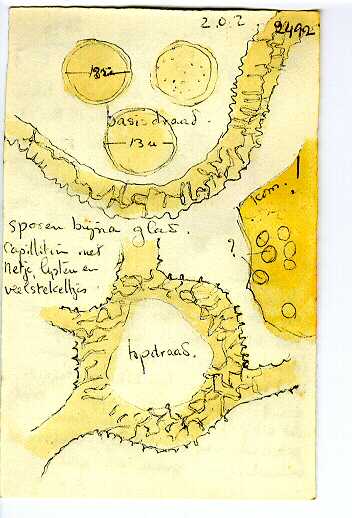 2492
basisdraad.
13 u
sporen bijna glad.
Capillitium met
Netje, lijsten en
veel stekeltjes.
?
topdraad.